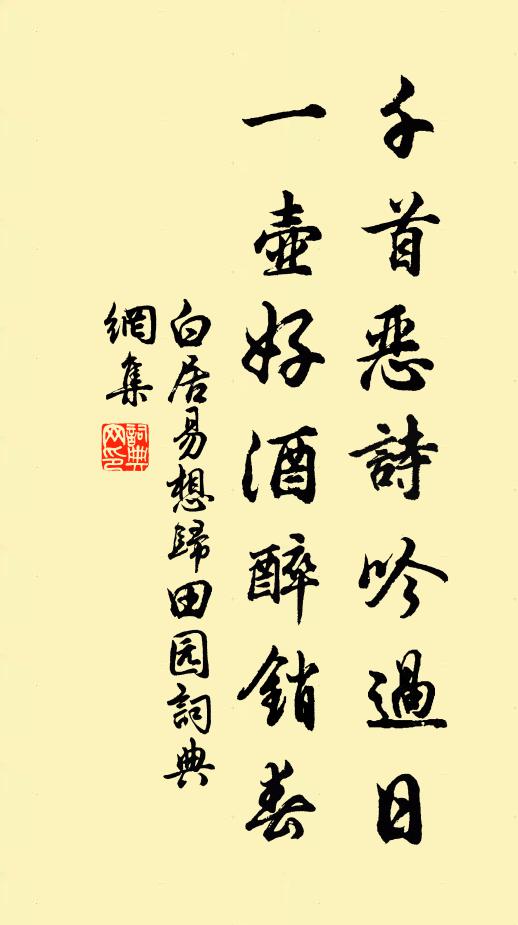 千首惡詩吟過日
一壺好酒醉銷春
白居易想歸田园詞典
網集
詞典
网印